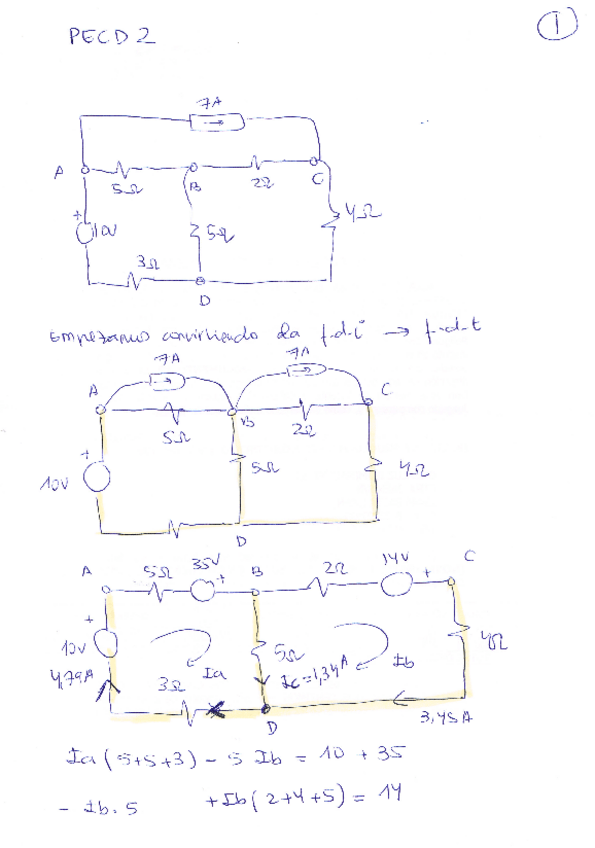 PECD 2
1
7A
A
5Ω
B
2Ω
C
+
10V
5Ω
4Ω
3Ω
D
Empezamos convirtiendo la f.d.i → f.d.t
7A
7A
A
B
C
5Ω
2Ω
+
10V
5Ω
4Ω
D
A
5Ω
35V
+
B
2Ω
14V
+
C
+
10V
4,79A
Ia
5Ω
Ic=1,34A
Ib
4Ω
3Ω
D
3,45A
Ia (5+5+3) - 5 Ib = 10 + 35
- Ib. 5 +Ib( 2+4+5) = 14